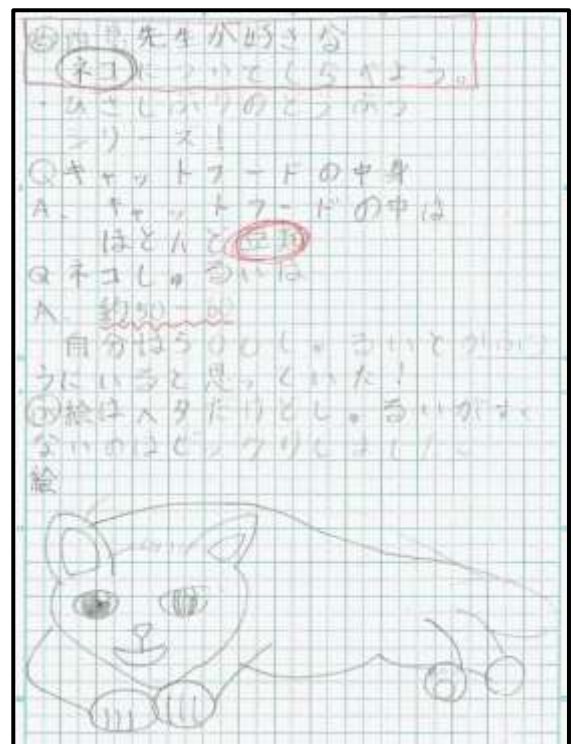 先生が好きな
ネコについてしらべよう。
・ひさしぶりのどうぶつ
シリーズ！
Qキャットフードの中身
A. キャットフードの中は
ほとんど
Qネコしゅるいは
A. 約30～60
自分は500しゅるいとかふつ
うにいると思っていた！
絵はヘタだけどしゅるいがすく
ないのはビックリしました。
絵